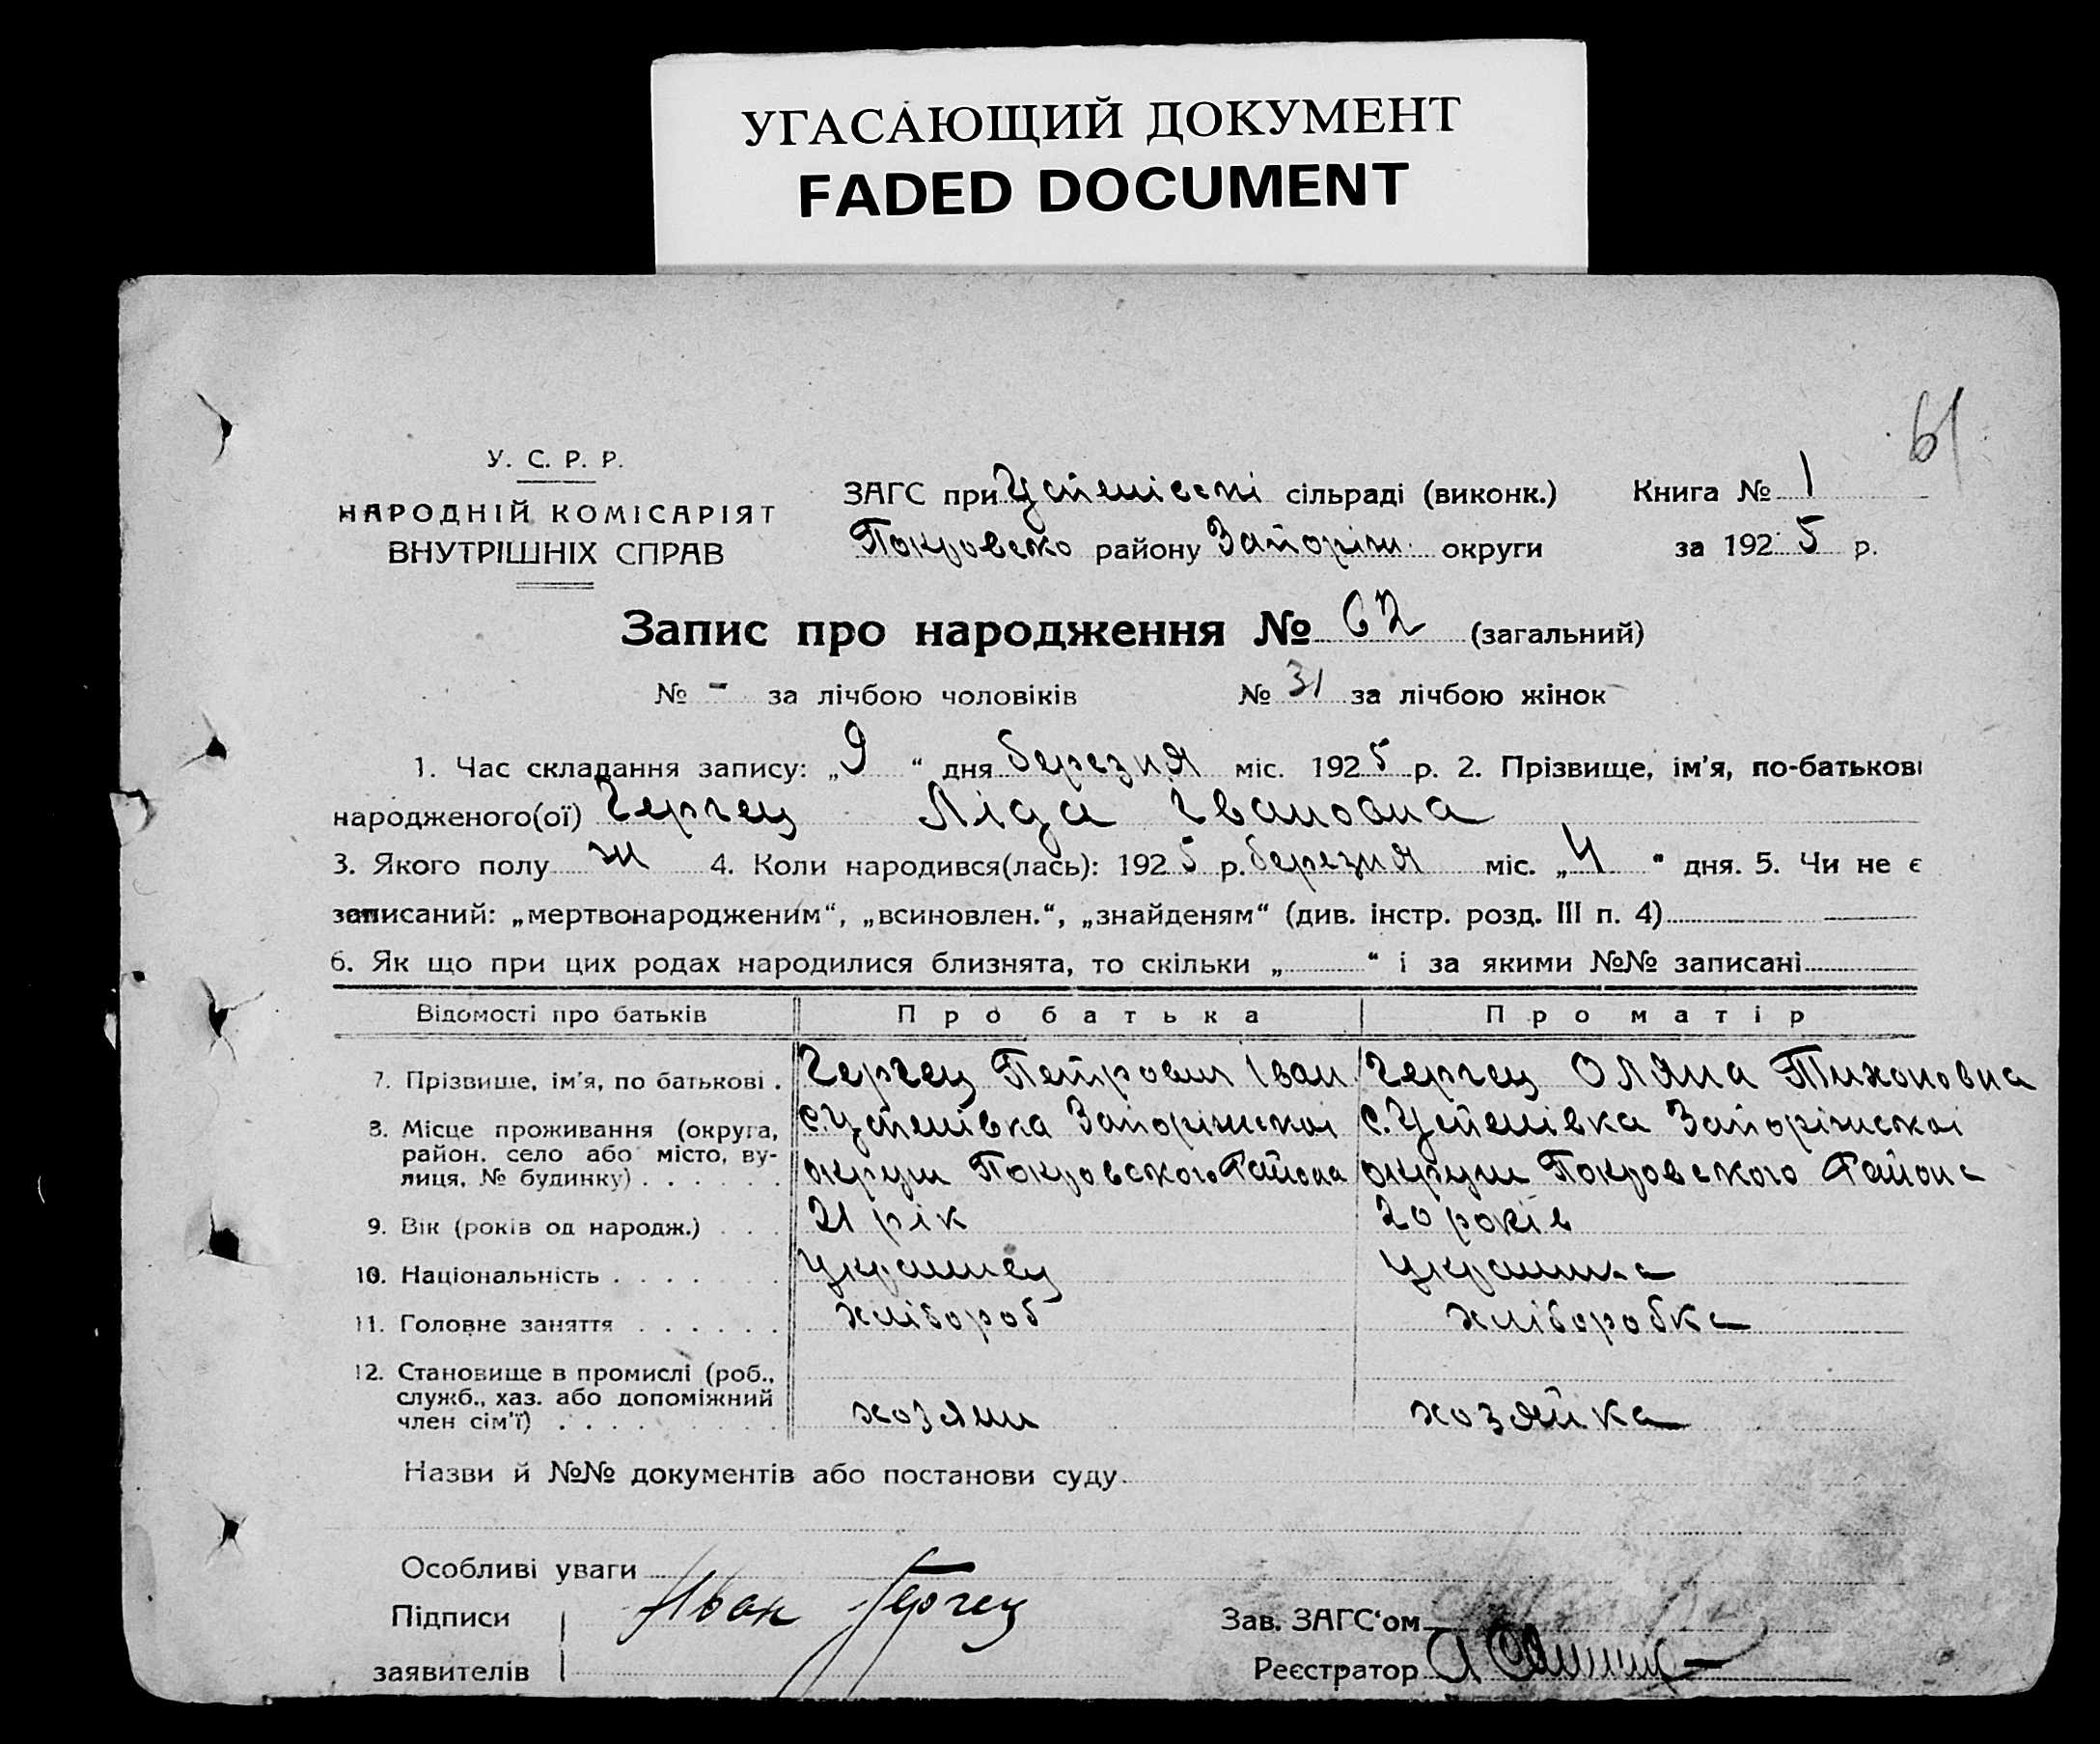 УГАСАЮЩИЙ ДОКУМЕНТ
FADED DOCUMENT
61
У. С. Р. Р.
НАРОДНІЙ КОМІСАРІЯТ
ВНУТРІШНІХ СПРАВ
ЗАГС при Успенівскі сільраді (виконк.)
Покровско району Запоріж. округи
Книга № 1
за 1925 р.
Запис про народження № 62 (загальний)
№ - за лічбою чоловіків № 31 за лічбою жінок
1. Час складання запису: „9“ дня березня міс. 1925 р. 2. Прізвище, ім’я, по-батькові
народженого(ої) Гергец Ліда Івановна
3. Якого полу ж 4. Коли народився(лась): 1925 р. березня міс. „4“ дня. 5. Чи не є
записаний: „мертвонародженим“, „всиновлен.“, „знайденям“ (див. інстр. розд. III п. 4)
6. Як що при цих родах народилися близнята, то скільки „ “ і за якими №№ записані
Відомості про батьків Про батька Про матір
7. Прізвише, ім’я, по батькові . Гергец Петрович Іван Гергец Оляна Тихоновна
8. Місце проживання (округа, с. Успенівка Запоріжскоі с. Успенівка Запоріжскоі
район, село або місто, ву-
лиця, № будинку) . . . . . . округи Покровского Района округи Покровского Района
9. Вік (років од народж.) . . . 21 рік 20 років
10. Національність . . . . . . . Украинец Украинка
11. Головне заняття . . . . . . хлібороб хліборобка
12. Становище в промислі (роб.,
служб., хаз. або допоміжний
член сім’ї) . . . . . . . . . хозяин хозяйка
Назви й №№ документів або постанови суду
Особливі уваги
Підписи Иван Гергец
заявителів
Зав. ЗАГС‘ом
Реєстратор